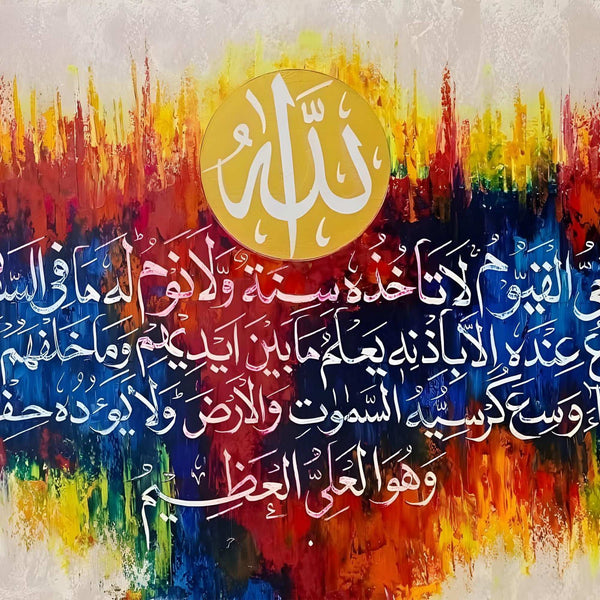 الله
القيوم لا تأخذه سنة ولا نوم له ما في
عنده الا باذنه يعلم ما بين ايديهم وما خلفهم
وسع كرسيه السموت والارض ولا يؤده
وهو العلي العظيم